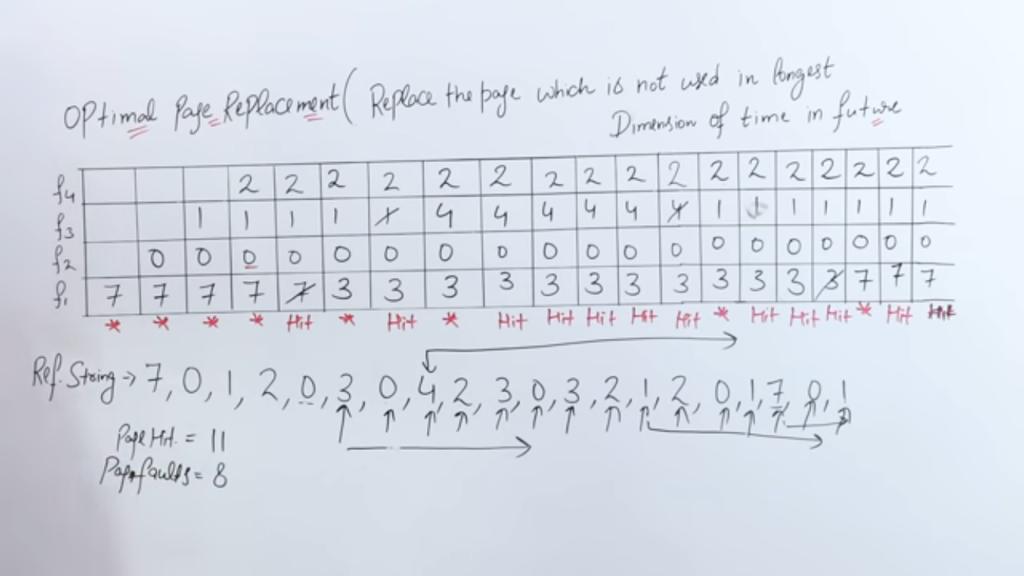 OPtimal Page Replacement ( Replace the page which is not used in longest
Dimension of time in future
f4 2 2 2 2 2 2 2 2 2 2 2 2 2 2 2 2 2
f3 1 1 1 1 1 4 4 4 4 4 4 1 1 1 1 1 1 1
f2 0 0 0 0 0 0 0 0 0 0 0 0 0 0 0 0 0 0 0
f1 7 7 7 7 7 3 3 3 3 3 3 3 3 3 3 3 3 7 7 7
* * * * Hit * Hit * Hit Hit Hit Hit Hit * Hit Hit Hit * Hit Hit
Ref. String → 7, 0, 1, 2, 0, 3, 0, 4, 2, 3, 0, 3, 2, 1, 2, 0, 1, 7, 0, 1
Page Hit. = 11
Page faults = 8